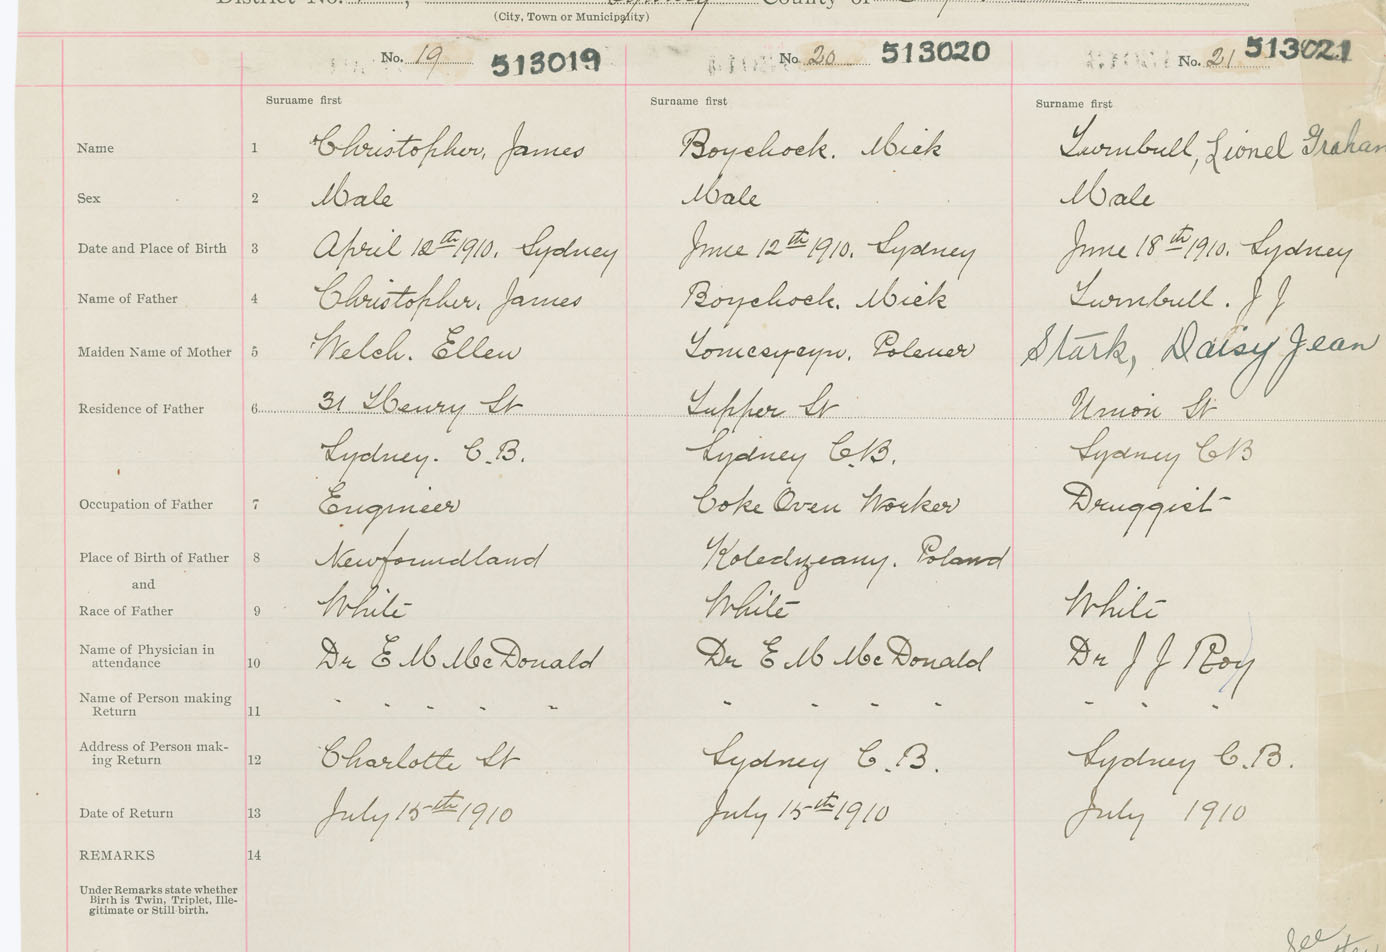 District No. Sydney County of
(City, Town or Municipality)
No. 19 513019 No. 20 513020 No. 21 513021
Surname first Surname first Surname first
Name 1 Christopher, James Boychock. Mick Turnbull, Lionel Graham
Sex 2 Male Male Male
Date and Place of Birth 3 April 12th 1910. Sydney June 12th 1910. Sydney June 18th 1910. Sydney
Name of Father 4 Christopher, James Boychock. Mick Turnbull. J J
Maiden Name of Mother 5 Welch. Ellen Polener Stark, Daisy Jean
Residence of Father 6 31 Henry St Tupper St Union St
Sydney. C.B. Sydney C.B. Sydney CB
Occupation of Father 7 Engineer Coke Oven Worker Druggist
Place of Birth of Father 8 Newfoundland Koledzeany. Poland
and
Race of Father 9 White White White
Name of Physician in
attendance 10 Dr E M McDonald Dr E M McDonald Dr J J Roy
Name of Person making
Return 11 " " " " " " " " " " " "
Address of Person mak-
ing Return 12 Charlotte St Sydney C.B. Sydney C.B.
Date of Return 13 July 15th 1910 July 15th 1910 July 1910
REMARKS 14
Under Remarks state whether
Birth is Twin, Triplet, Ille-
gitimate or Still-birth.
See